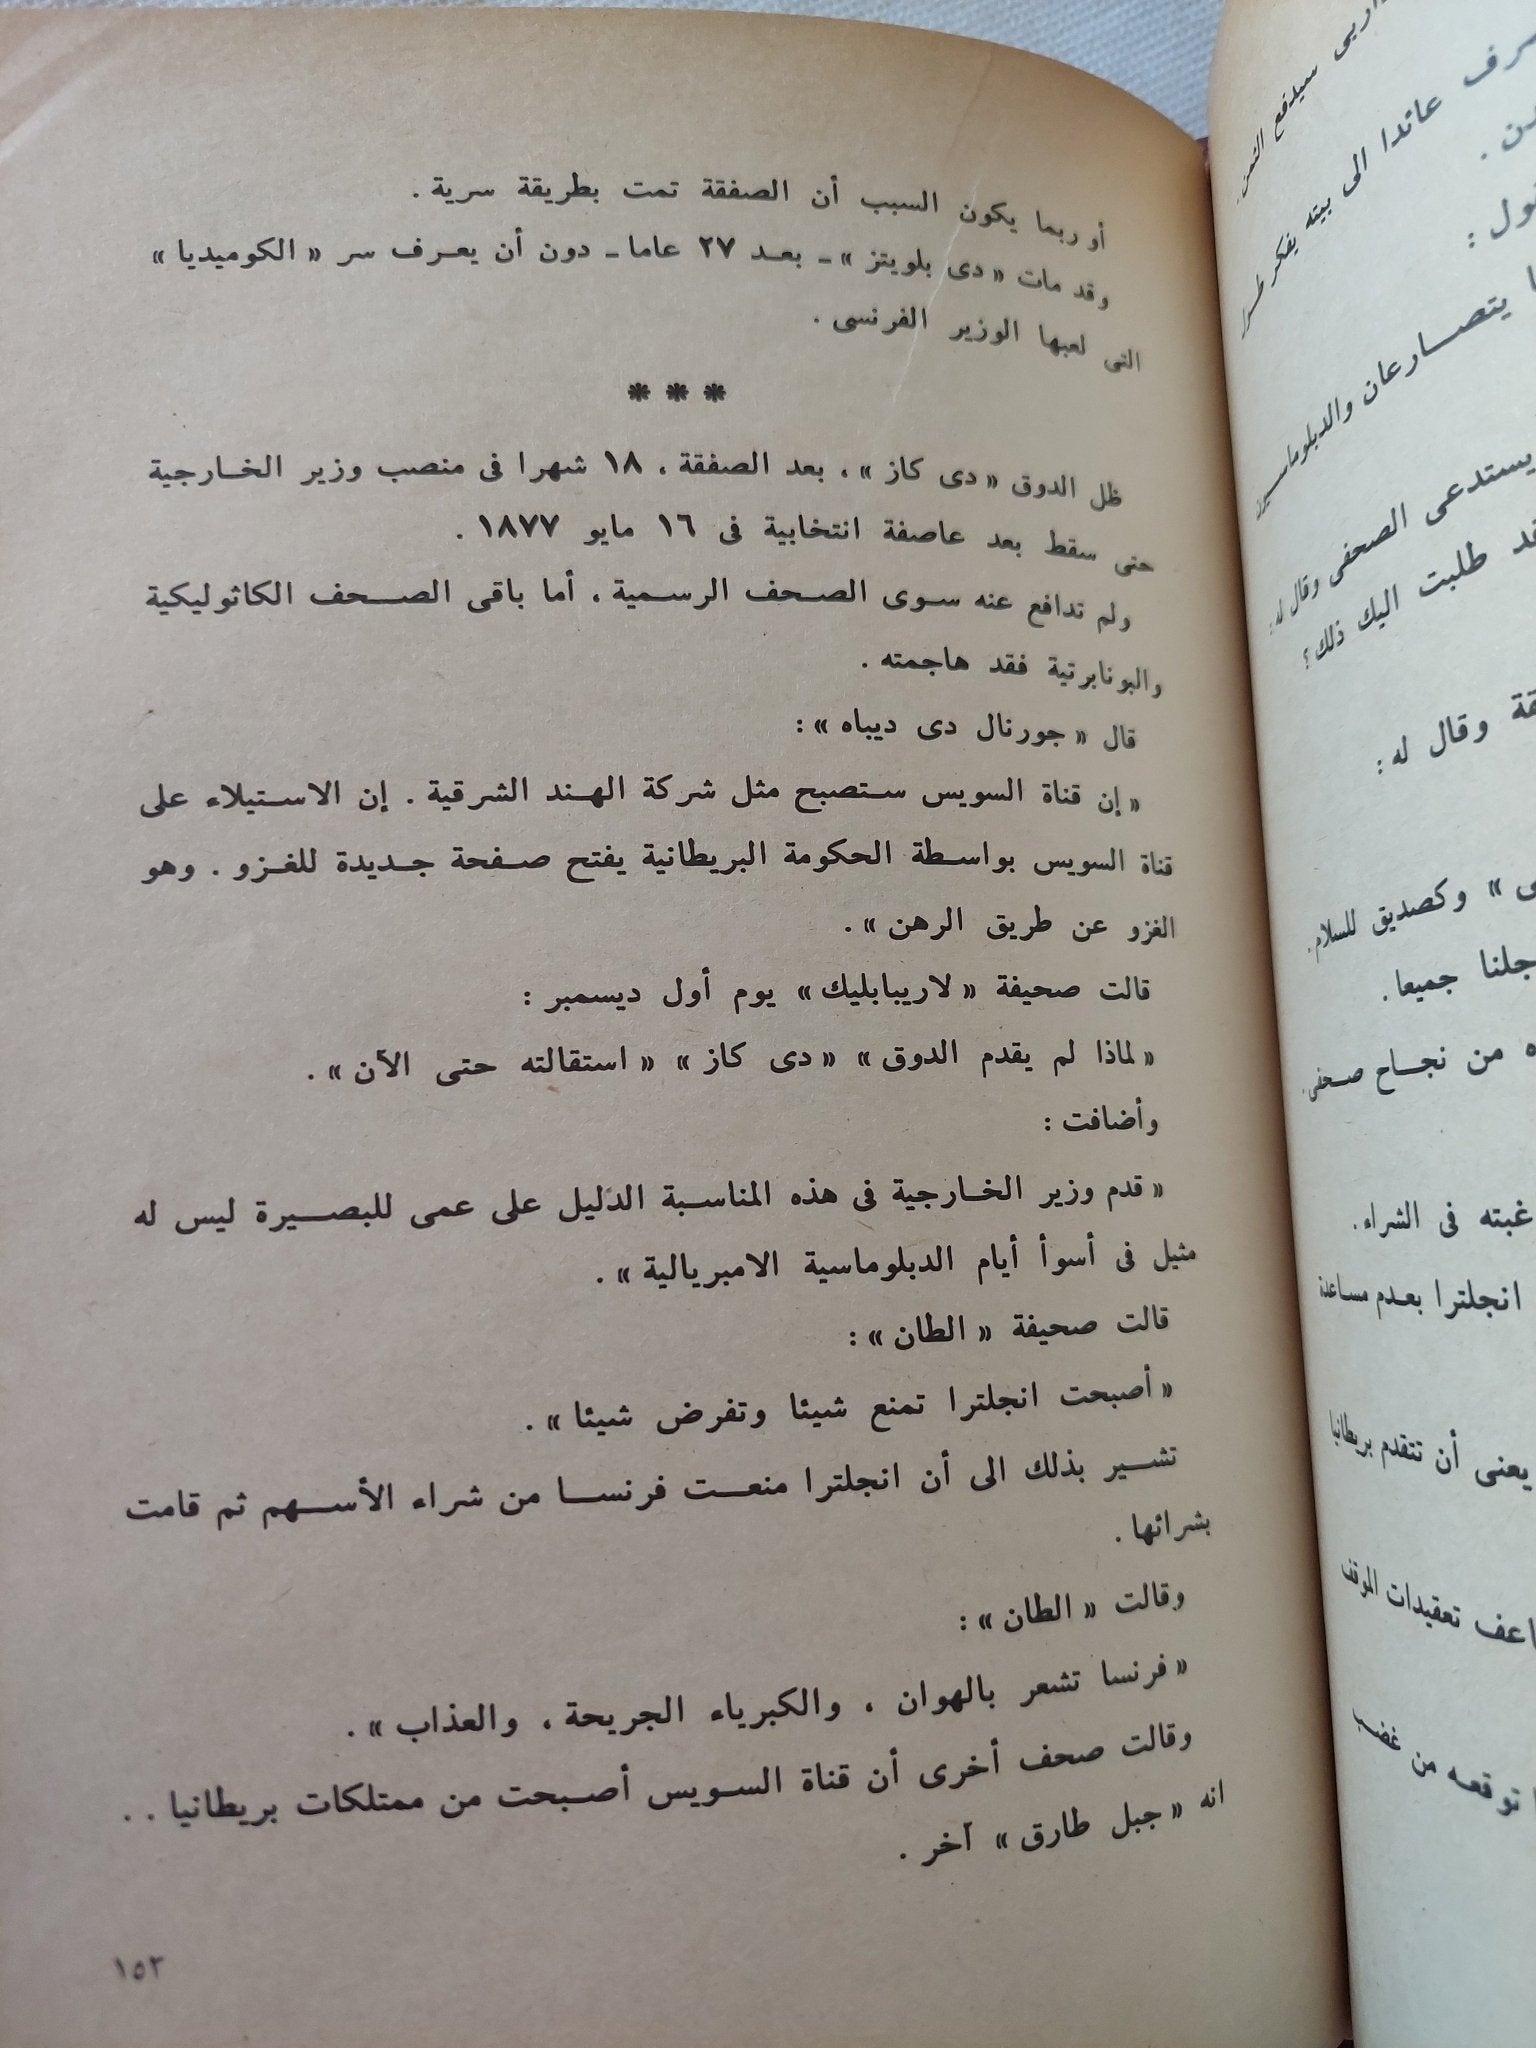 أو ربما يكون السبب أن الصفقة تمت بطريقة سرية .
وقد مات « دى بلويتز » ـ بعد ٢٧ عاما ـ دون أن يعرف سر « الكوميديا »
التى لعبها الوزير الفرنسى .
* * *
ظل الدوق « دى كاز » ، بعد الصفقة ، ١٨ شهرا فى منصب وزير الخارجية
حتى سقط بعد عاصفة انتخابية فى ١٦ مايو ١٨٧٧ .
ولم تدافع عنه سوى الصحف الرسمية ، أما باقى الصحف الكاثوليكية
والبونابرتية فقد هاجمته .
قال « جورنال دى ديباه » :
« إن قناة السويس ستصبح مثل شركة الهند الشرقية . إن الاستيلاء على
قناة السويس بواسطة الحكومة البريطانية يفتح صفحة جديدة للغزو . وهو
الغزو عن طريق الرهن » .
قالت صحيفة « لاريبابليك » يوم أول ديسمبر :
« لماذا لم يقدم الدوق » « دى كاز » « استقالته حتى الآن » .
وأضافت :
« قدم وزير الخارجية فى هذه المناسبة الدليل على عمى للبصيرة ليس له
مثيل فى أسوأ أيام الدبلوماسية الامبريالية » .
قالت صحيفة « الطان » :
« أصبحت انجلترا تمنع شيئا وتفرض شيئا » .
تشير بذلك الى أن انجلترا منعت فرنسا من شراء الأسهم ثم قامت
بشرائها .
وقالت « الطان » :
« فرنسا تشعر بالهوان ، والكبرياء الجريحة ، والعذاب » .
وقالت صحف أخرى أن قناة السويس أصبحت من ممتلكات بريطانيا . .
انه « جبل طارق » آخر .
١٥٣
سيدفع الثمن .
عائدا الى بيته يفكر طول
يتصارعان والدبلوماسيون
يستدعى الصحفى وقال له :
طلبت اليك ذلك ؟
وقال له :
» وكصديق للسلام .
جميعا .
من نجاح صحفى .
فى الشراء .
انجلترا بعدم مساعدة
يعنى أن تتقدم بريطانيا
تعقيدات الموقف
توقعه من غضب